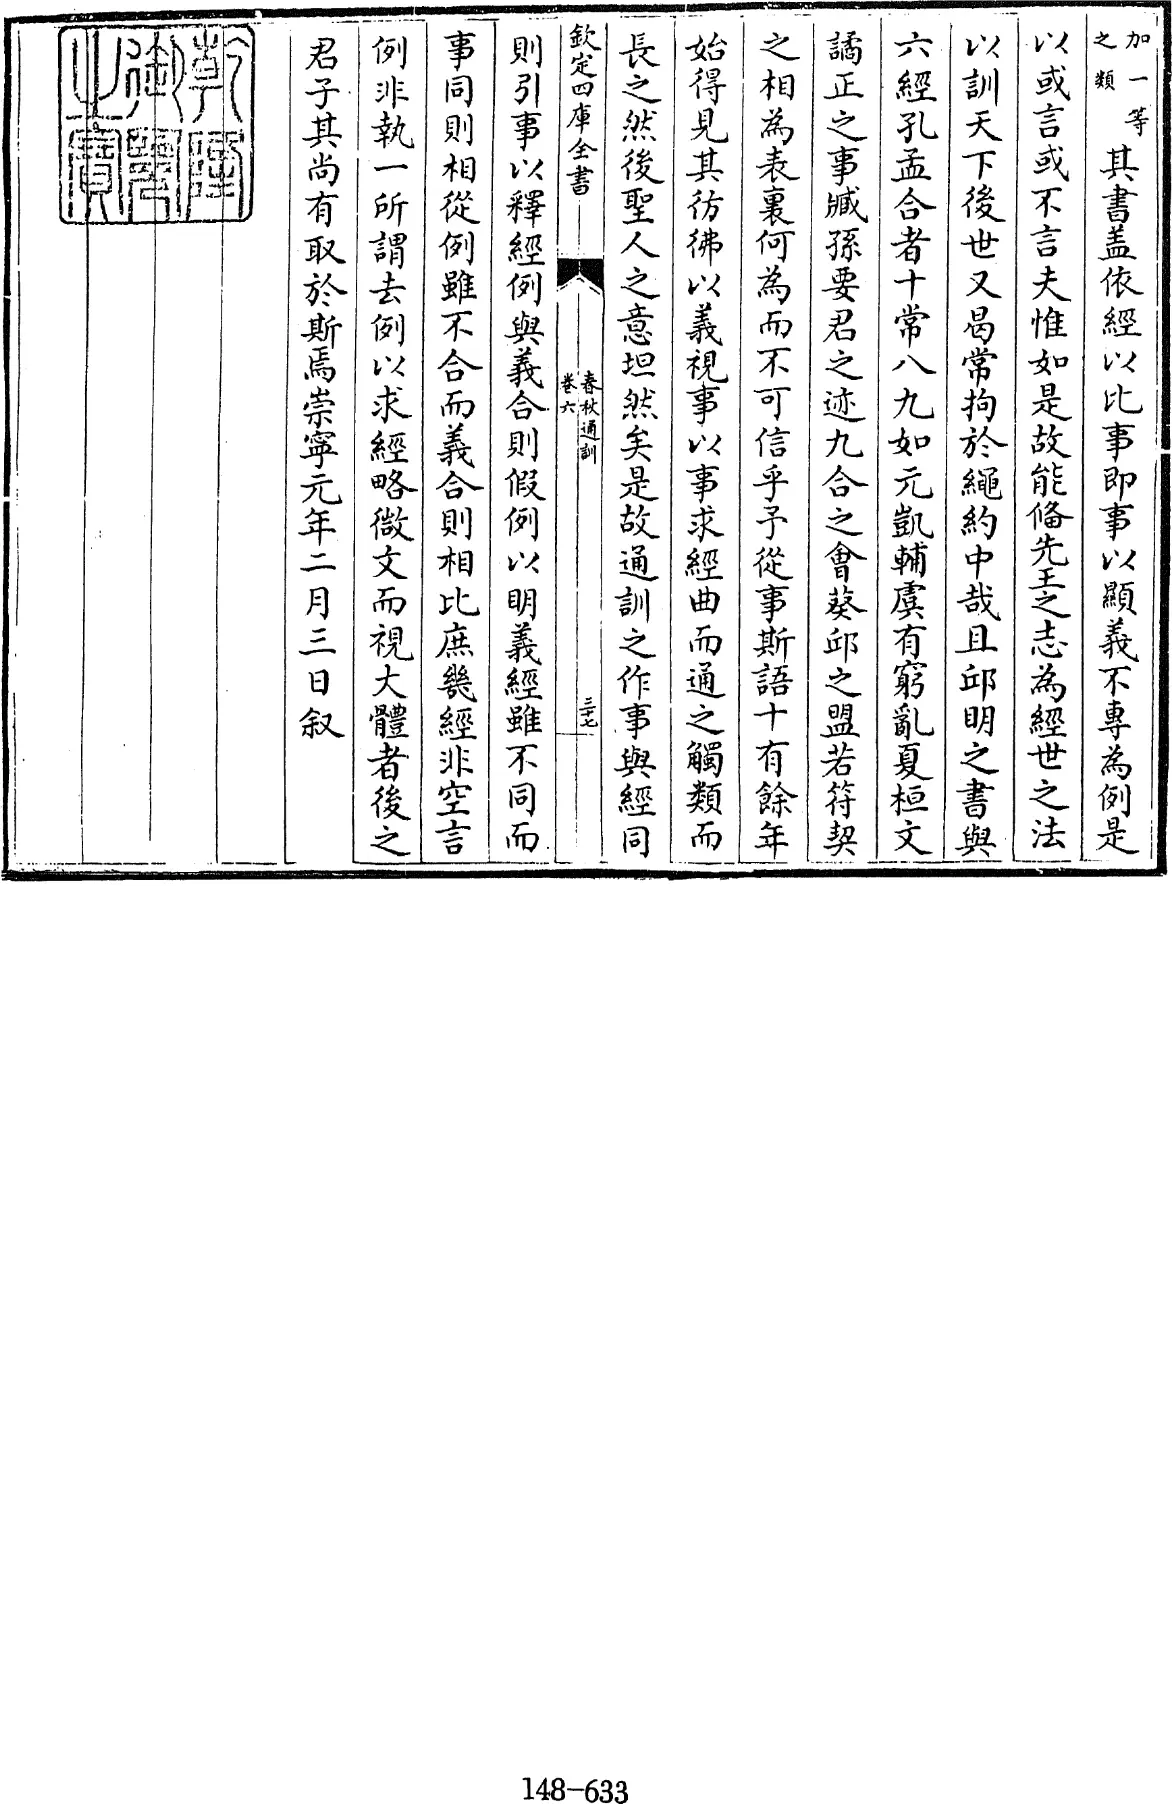 加一等
之類
其書盖依經以比事即事以顯義不專為例是
以或言或不言夫惟如是故能脩先王之志為經世之法
以訓天下後世又曷常拘於繩約中哉且邱明之書與
六經孔孟合者十常八九如元凱輔虞有窮亂夏桓文
譎正之事臧孫要君之迹九合之會葵邱之盟若符契
之相為表裏何為而不可信乎予從事斯語十有餘年
始得見其彷彿以義視事以事求經曲而通之觸類而
長之然後聖人之意坦然矣是故通訓之作事與經同
欽定四庫全書
春秋通訓
卷六
三十七
則引事以釋經例與義合則假例以明義經雖不同而
事同則相從例雖不合而義合則相比庶幾經非空言
例非執一所謂去例以求經略微文而視大體者後之
君子其尚有取於斯焉崇寧元年二月三日叙
乾隆
御覽
之寶
148-633